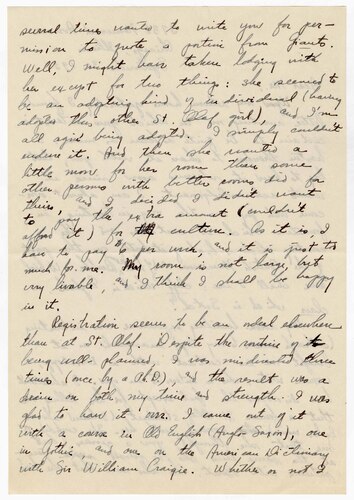 several times wanted to write you for per-
mission to quote a portion from Giants.
Well, I might have taken lodging with
her except for two things: she seemed to
be an adopting kind of individual (having
adopted this other St. Olaf girl), and I'm
all against being adopted. I simply couldn't
endure it. And then she wanted a
little more for her room than some
other persons with better rooms did for
theirs, and I decided I didn't want
to pay the extra amount (couldn't
afford it) for culture. As it is, I
have to pay $6 per week, and it is just to
much for me. My room is not large, but
very livable, and I think I shall be happy
in it.
Registration seems to be an ordeal elsewhere
than at St. Olaf. Despite the routine of its
being well-planned, I was misdirected three
times (once by a Ph.D.), and the result was a
drain on both my time and strength. I was
glad to have it over. I came out of it
with a course in Old English (Anglo-Saxon), one
in Gothic, and one on the American Dictionary
with Sir William Craigie. Whether or not I